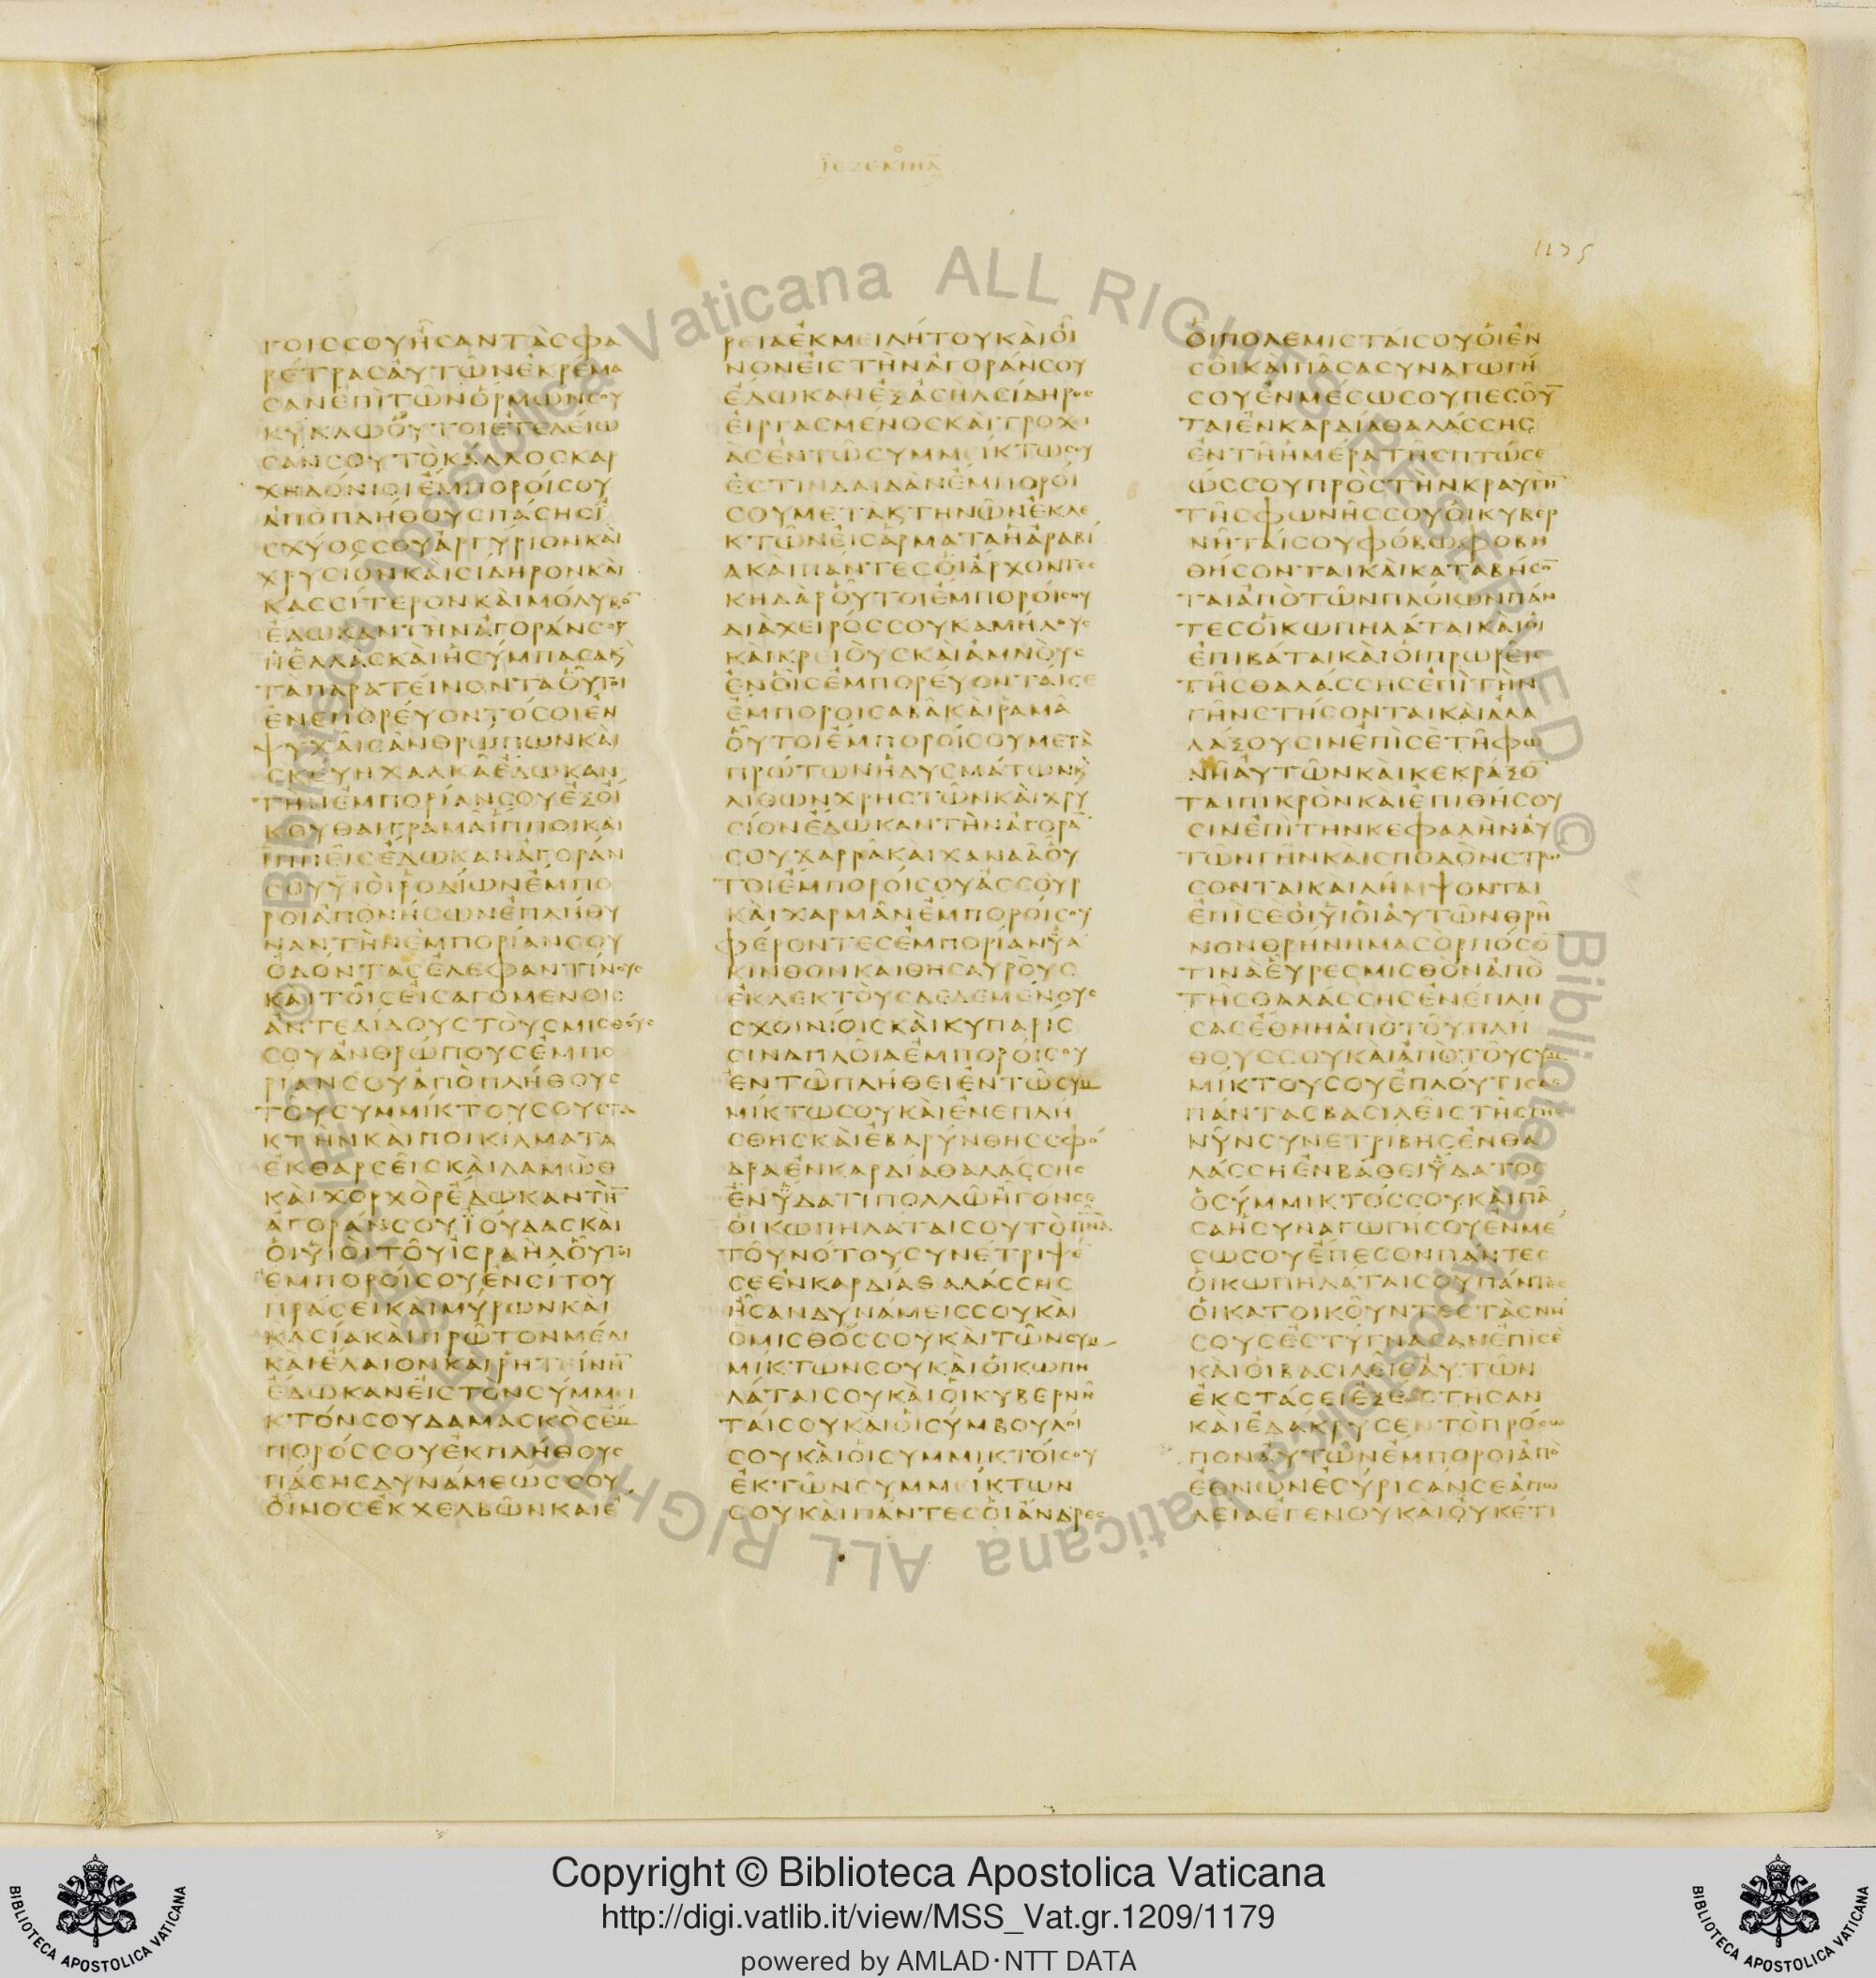 ΙΕΖΕΚΙΗΛ
1175
ΓΟΙССΟΥΗСΑΝΤΑСΦΑ
ΡΕΤΡΑСΑΥΤΩΝΕΚΡΕΜΑ
СΑΝΕΠΙΤΩΝΟΡΜΩΝСΟΥ
ΚΥΚΛΩΟΥΤΟΙΕΤΕΛΕΙΩ
СΑΝСΟΥΤΟΚΑΛΛΟСΚΑΡ
ΧΗΔΟΝΙΟΙΕΜΠΟΡΟΙСΟΥ
ΑΠΟΠΛΗΘΟΥСΠΑСΗСΙ
СΧΥΟССΟΥΑΡΓΥΡΙΟΝΚΑΙ
ΧΡΥСΙΟΝΚΑΙСΙΔΗΡΟΝΚΑΙ
ΚΑССΙΤΕΡΟΝΚΑΙΜΟΛΥΒΟ̅
ΕΔΩΚΑΝΤΗΝΑΓΟΡΑΝСΟΥ
ΗΕΛΛΑСΚΑΙΗСΥΜΠΑСΑΚ
ΤΑΠΑΡΑΤΕΙΝΟΝΤΑΟΥΤΟΙ
ΕΝΕΠΟΡΕΥΟΝΤΟСΟΙΕΝ
ΨΥΧΑΙСΑΝΘΡΩΠΩΝΚΑΙ
СΚΕΥΗΧΑΛΚΑΕΔΩΚΑΝ
ΤΗΝΕΜΠΟΡΙΑΝСΟΥΕΞΟΙ
ΚΟΥΘΑΙΓΡΑΜΑΙΠΠΟΙΚΑΙ
ΙΠΠΕΙСΕΔΩΚΑΝΑΓΟΡΑΝ
СΟΥΥΙΟΙΡΟΔΙΩΝΕΜΠΟ
ΡΟΙΑΠΟΝΗСΩΝΕΠΛΗΘΥ
ΝΑΝΤΗΝΕΜΠΟΡΙΑΝСΟΥ
ΟΔΟΝΤΑСΕΛΕΦΑΝΤΙΝΟΥС
ΚΑΙΤΟΙСΕΙСΑΓΟΜΕΝΟΙС
ΑΝΤΕΔΙΔΟΥСΤΟΥСΜΙСΘΟΥС
СΟΥΑΝΘΡΩΠΟΥСΕΜΠΟ
ΡΙΑΝСΟΥΑΠΟΠΛΗΘΟΥС
ΤΟΥСΥΜΜΙΚΤΟΥСΟΥСΤΑ
ΚΤΗΝΚΑΙΠΟΙΚΙΛΜΑΤΑ
ΕΚΘΑΡСΕΙСΚΑΙΛΑΜΩΘ
ΚΑΙΧΟΡΧΟΡΕΔΩΚΑΝΤΗ̅
ΑΓΟΡΑΝСΟΥΪΟΥΔΑСΚΑΙ
ΟΙΥΙΟΙΤΟΥΙСΡΑΗΛΟΥΤΟΙ
ΕΜΠΟΡΟΙСΟΥΕΝСΙΤΟΥ
ΠΡΑСΕΙΚΑΙΜΥΡΩΝΚΑΙ
ΚΑСΙΑΚΑΙΠΡΩΤΟΝΜΕΛΙ
ΚΑΙΕΛΑΙΟΝΚΑΙΡΗΤΕΙΝΗ̅
ΕΔΩΚΑΝΕΙСΤΟΝСΥΜΜΙ
ΚΤΟΝСΟΥΔΑΜΑСΚΟСΕΜ
ΠΟΡΟССΟΥΕΚΠΛΗΘΟΥС
ΠΑСΗСΔΥΝΑΜΕΩССΟΥ
ΟΙΝΟСΕΚΧΕΛΒΩΝΚΑΙΕ
ΡΕΙΑΕΚΜΕΙΛΗΤΟΥΚΑΙΟΙ
ΝΟΝΕΙСΤΗΝΑΓΟΡΑΝСΟΥ
ΕΔΩΚΑΝΕΞΑСΗΛСΙΔΗΡΟС
ΕΙΡΓΑСΜΕΝΟСΚΑΙΤΡΟΧΙ
ΑСΕΝΤΩСΥΜΜΕΙΚΤΩСΟΥ
ΕСΤΙΝΔΑΙΔΑΝΕΜΠΟΡΟΙ
СΟΥΜΕΤΑΚΤΗΝΩΝΕΚΛΕ
ΚΤΩΝΕΙСΑΡΜΑΤΑΗΑΡΑΒΙ
ΑΚΑΙΠΑΝΤΕСΟΙΑΡΧΟΝΤΕС
ΚΗΔΑΡΟΥΤΟΙΕΜΠΟΡΟΙСΟΥ
ΔΙΑΧΕΙΡΟССΟΥΚΑΜΗΛΟΥС
ΚΑΙΚΡΕΙΟΥСΚΑΙΑΜΝΟΥС
ΕΝΟΙСΕΜΠΟΡΕΥΟΝΤΑΙСΕ
ΕΜΠΟΡΟΙСΑΒΑΚΑΙΡΑΜΑ
ΟΥΤΟΙΕΜΠΟΡΟΙСΟΥΜΕΤΑ
ΠΡΩΤΩΝΗΔΥСΜΑΤΩΝΚ
ΛΙΘΩΝΧΡΗСΤΩΝΚΑΙΧΡΥ
СΙΟΝΕΔΩΚΑΝΤΗΝΑΓΟΡΑ̅
СΟΥΧΑΡΡΑΚΑΙΧΑΝΑΑΟΥ
ΤΟΙΕΜΠΟΡΟΙСΟΥΑССΟΥΡ
ΚΑΙΧΑΡΜΑΝΕΜΠΟΡΟΙСΟΥ
ΦΕΡΟΝΤΕСΕΜΠΟΡΙΑΝΥΑ
ΚΙΝΘΟΝΚΑΙΘΗСΑΥΡΟΥС
ΕΚΛΕΚΤΟΥСΔΕΔΕΜΕΝΟΥС
СΧΟΙΝΙΟΙСΚΑΙΚΥΠΑΡΙС
СΙΝΑΠΛΟΙΑΕΜΠΟΡΟΙСΟΥ
ΕΝΤΩΠΛΗΘΕΙΕΝΤΩСΥΜ
ΜΙΚΤΩСΟΥΚΑΙΕΝΕΠΛΗ
СΘΗСΚΑΙΕΒΑΡΥΝΘΗССΦΟ
ΔΡΑΕΝΚΑΡΔΙΑΘΑΛΑССΗС
ΕΝΥΔΑΤΙΠΟΛΛΩΗΓΟΝСΕ
ΟΙΚΩΠΗΛΑΤΑΙСΟΥΤΟΠΝΑ
ΤΟΥΝΟΤΟΥСΥΝΕΤΡΙΨΕ
СΕΕΝΚΑΡΔΙΑΘΑΛΑССΗС
ΗСΑΝΔΥΝΑΜΕΙССΟΥΚΑΙ
ΟΜΙСΘΟССΟΥΚΑΙΤΩΝСΥΜ
ΜΙΚΤΩΝСΟΥΚΑΙΟΙΚΩΠΗ
ΛΑΤΑΙСΟΥΚΑΙΟΙΚΥΒΕΡΝΗ
ΤΑΙСΟΥΚΑΙΟΙСΥΜΒΟΥΛΟΙ
СΟΥΚΑΙΟΙСΥΜΜΙΚΤΟΙСΟΥ
ΕΚΤΩΝСΥΜΜΕΙΚΤΩΝ
СΟΥΚΑΙΠΑΝΤΕСΟΙΑΝΔΡΕС
ΟΙΠΟΛΕΜΙСΤΑΙСΟΥΟΙΕΝ
СΟΙΚΑΙΠΑСΑСΥΝΑΓΩΓΗ
СΟΥΕΝΜΕСΩСΟΥΠΕСΟΥ̅
ΤΑΙΕΝΚΑΡΔΙΑΘΑΛΑССΗС
ΕΝΤΗΗΜΕΡΑΤΗСΠΤΩСΕ
ΩССΟΥΠΡΟСΤΗΝΚΡΑΥΓΗ̅
ΤΗСΦΩΝΗССΟΥΟΙΚΥΒΕΡ
ΝΗΤΑΙСΟΥΦΟΒΩΦΟΒΗ
ΘΗСΟΝΤΑΙΚΑΙΚΑΤΑΒΗСΟ̅
ΤΑΙΑΠΟΤΩΝΠΛΟΙΩΝΠΑΝ
ΤΕСΟΙΚΩΠΗΛΑΤΑΙΚΑΙΟΙ
ΕΠΙΒΑΤΑΙΚΑΙΟΙΠΡΩΡΕΙС
ΤΗСΘΑΛΑССΗСΕΠΙΤΗΝ
ΓΗΝСΤΗСΟΝΤΑΙΚΑΙΑΛΑ
ΛΑΞΟΥСΙΝΕΠΙСΕΤΗΦΩ
ΝΗΑΥΤΩΝΚΑΙΚΕΚΡΑΞΟ̅
ΤΑΙΠΙΚΡΟΝΚΑΙΕΠΙΘΗСΟΥ
СΙΝΕΠΙΤΗΝΚΕΦΑΛΗΝΑΥ
ΤΩΝΓΗΝΚΑΙСΠΟΔΟΝСΤΡΩ
СΟΝΤΑΙΚΑΙΛΗΜΨΟΝΤΑΙ
ΕΠΙСΕΟΙΥΙΟΙΑΥΤΩΝΘΡΗ
ΝΟΝΘΡΗΝΗΜΑСΟΡΠΟСΟ
ΤΙΝΑΕΥΡΕСΜΙСΘΟΝΑΠΟ
ΤΗСΘΑΛΑССΗСΕΝΕΠΛΗ
СΑСΕΘΝΗΑΠΟΤΟΥΠΛΗ
ΘΟΥССΟΥΚΑΙΑΠΟΤΟΥСΥΜ
ΜΙΚΤΟΥСΟΥΕΠΛΟΥΤΙСΑС
ΠΑΝΤΑСΒΑСΙΛΕΙСΤΗСΓΗС
ΝΥΝСΥΝΕΤΡΙΒΗСΕΝΘΑ
ΛΑССΗΕΝΒΑΘΕΙΥΔΑΤΟС
ΟСΥΜΜΙΚΤΟССΟΥΚΑΙΠΑ
СΑΗСΥΝΑΓΩΓΗСΟΥΕΝΜΕ
СΩСΟΥΕΠΕСΟΝΠΑΝΤΕС
ΟΙΚΩΠΗΛΑΤΑΙСΟΥΠΑΝΤΕС
ΟΙΚΑΤΟΙΚΟΥΝΤΕСΤΑСΝΗ
СΟΥСΕСΤΥΓΝΑСΑΝΕΠΙСΕ
ΚΑΙΟΙΒΑСΙΛΕΙСΑΥΤΩΝ
ΕΚСΤΑСΕΙΕΞΕСΤΗСΑΝ
ΚΑΙΕΔΑΚΡΥСΕΝΤΟΠΡΟСΩ
ΠΟΝΑΥΤΩΝΕΜΠΟΡΟΙΑΠΟ
ΕΘΝΩΝΕСΥΡΙСΑΝСΕΑΠΩ
ΛΕΙΑΕΓΕΝΟΥΚΑΙΟΥΚΕΤΙ
Copyright © Biblioteca Apostolica Vaticana
http://digi.vatlib.it/view/MSS_Vat.gr.1209/1179
powered by AMLAD·NTT DATA